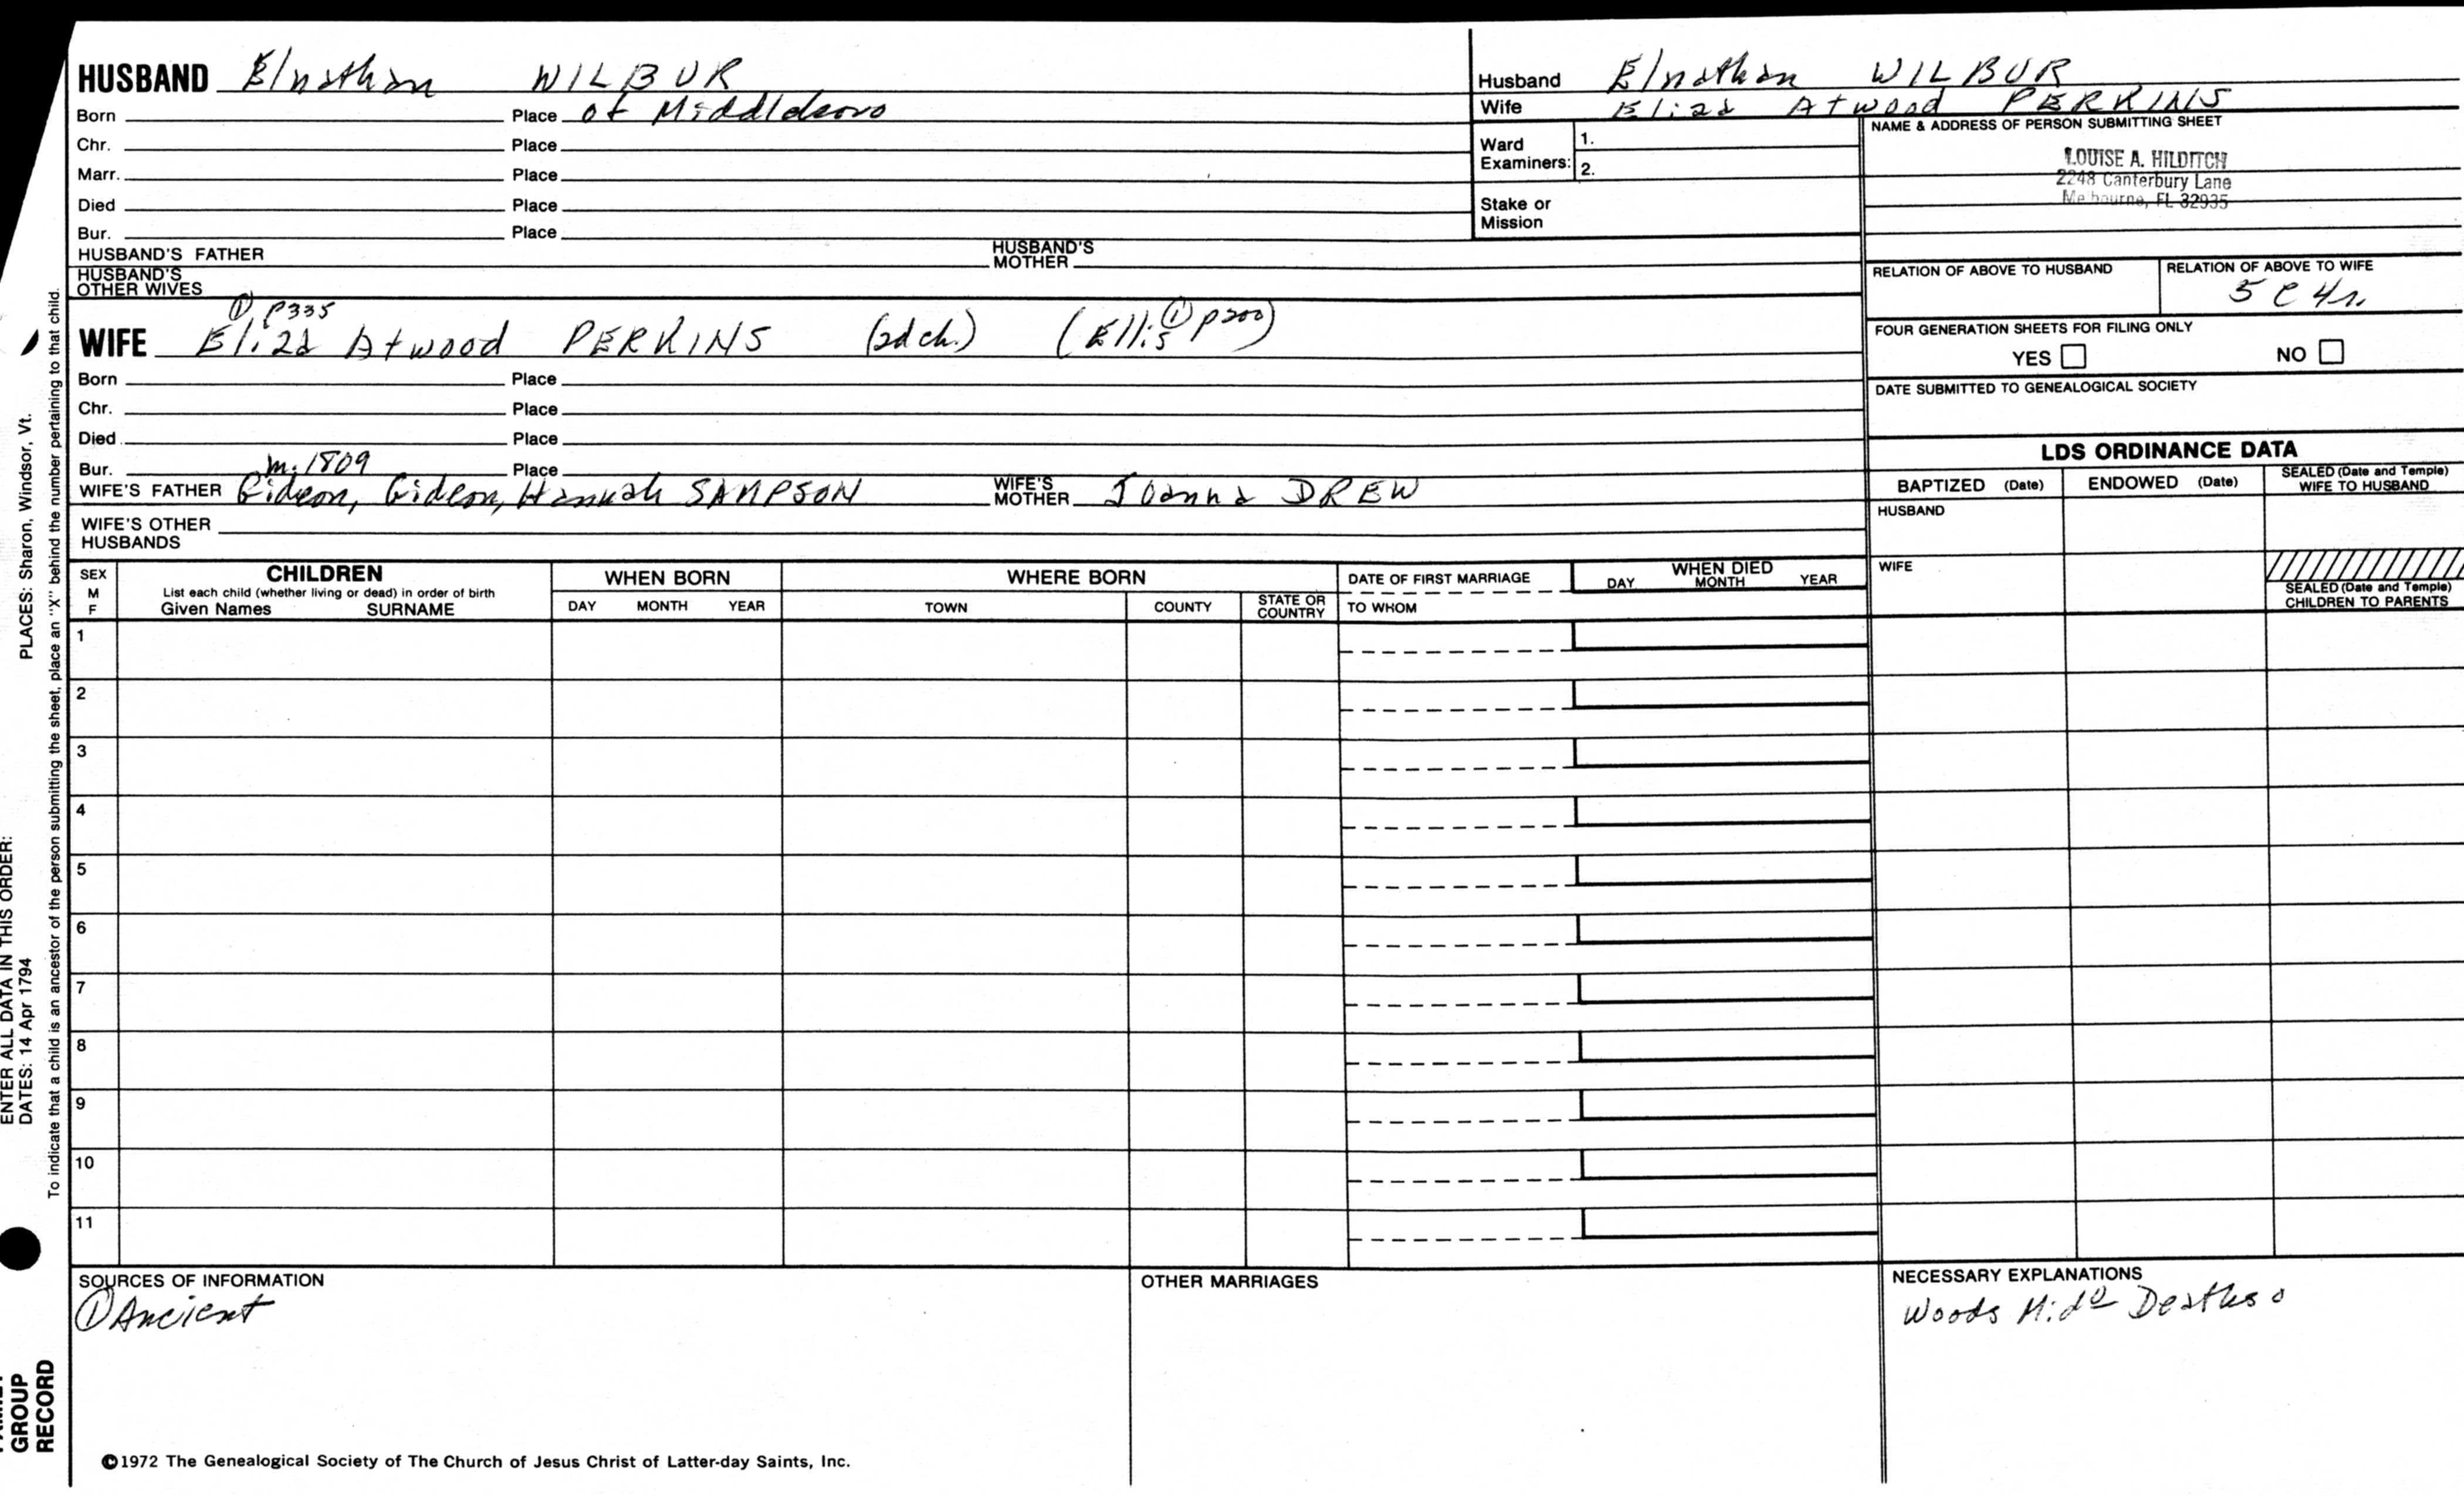 HUSBAND Elnathan WILBUR
Born Place of Middleboro
Chr. Place
Marr. Place
Died Place
Bur. Place
HUSBAND'S FATHER HUSBAND'S MOTHER
HUSBAND'S OTHER WIVES
Husband Elnathan WILBUR
Wife Eliza Atwood PERKINS
Ward Examiners: 1.
2.
Stake or Mission
NAME & ADDRESS OF PERSON SUBMITTING SHEET
LOUISE A. HILDITCH
2248 Canterbury Lane
Melbourne, FL 32935
RELATION OF ABOVE TO HUSBAND
RELATION OF ABOVE TO WIFE
5 C 4 r.
FOUR GENERATION SHEETS FOR FILING ONLY
YES NO
DATE SUBMITTED TO GENEALOGICAL SOCIETY
① p335
WIFE Eliza Atwood PERKINS (2d ch.) (Ellis ① p200)
Born Place
Chr. Place
Died Place
Bur. m. 1809 Place
WIFE'S FATHER Gideon, Gideon, Hannah SAMPSON WIFE'S MOTHER Joanna DREW
WIFE'S OTHER HUSBANDS
LDS ORDINANCE DATA
BAPTIZED (Date) ENDOWED (Date) SEALED (Date and Temple) WIFE TO HUSBAND
HUSBAND
WIFE
SEALED (Date and Temple) CHILDREN TO PARENTS
SEX M F
CHILDREN
List each child (whether living or dead) in order of birth
Given Names SURNAME
WHEN BORN
DAY MONTH YEAR
WHERE BORN
TOWN COUNTY STATE OR COUNTRY
DATE OF FIRST MARRIAGE
TO WHOM
WHEN DIED
DAY MONTH YEAR
1
2
3
4
5
6
7
8
9
10
11
SOURCES OF INFORMATION
① Ancient
OTHER MARRIAGES
NECESSARY EXPLANATIONS
Woods Mido Deaths o
©1972 The Genealogical Society of The Church of Jesus Christ of Latter-day Saints, Inc.
GROUP
RECORD
ENTER ALL DATA IN THIS ORDER:
DATES: 14 Apr 1794
PLACES: Sharon, Windsor, Vt.
To indicate that a child is an ancestor of the person submitting the sheet, place an "X" behind the number pertaining to that child.